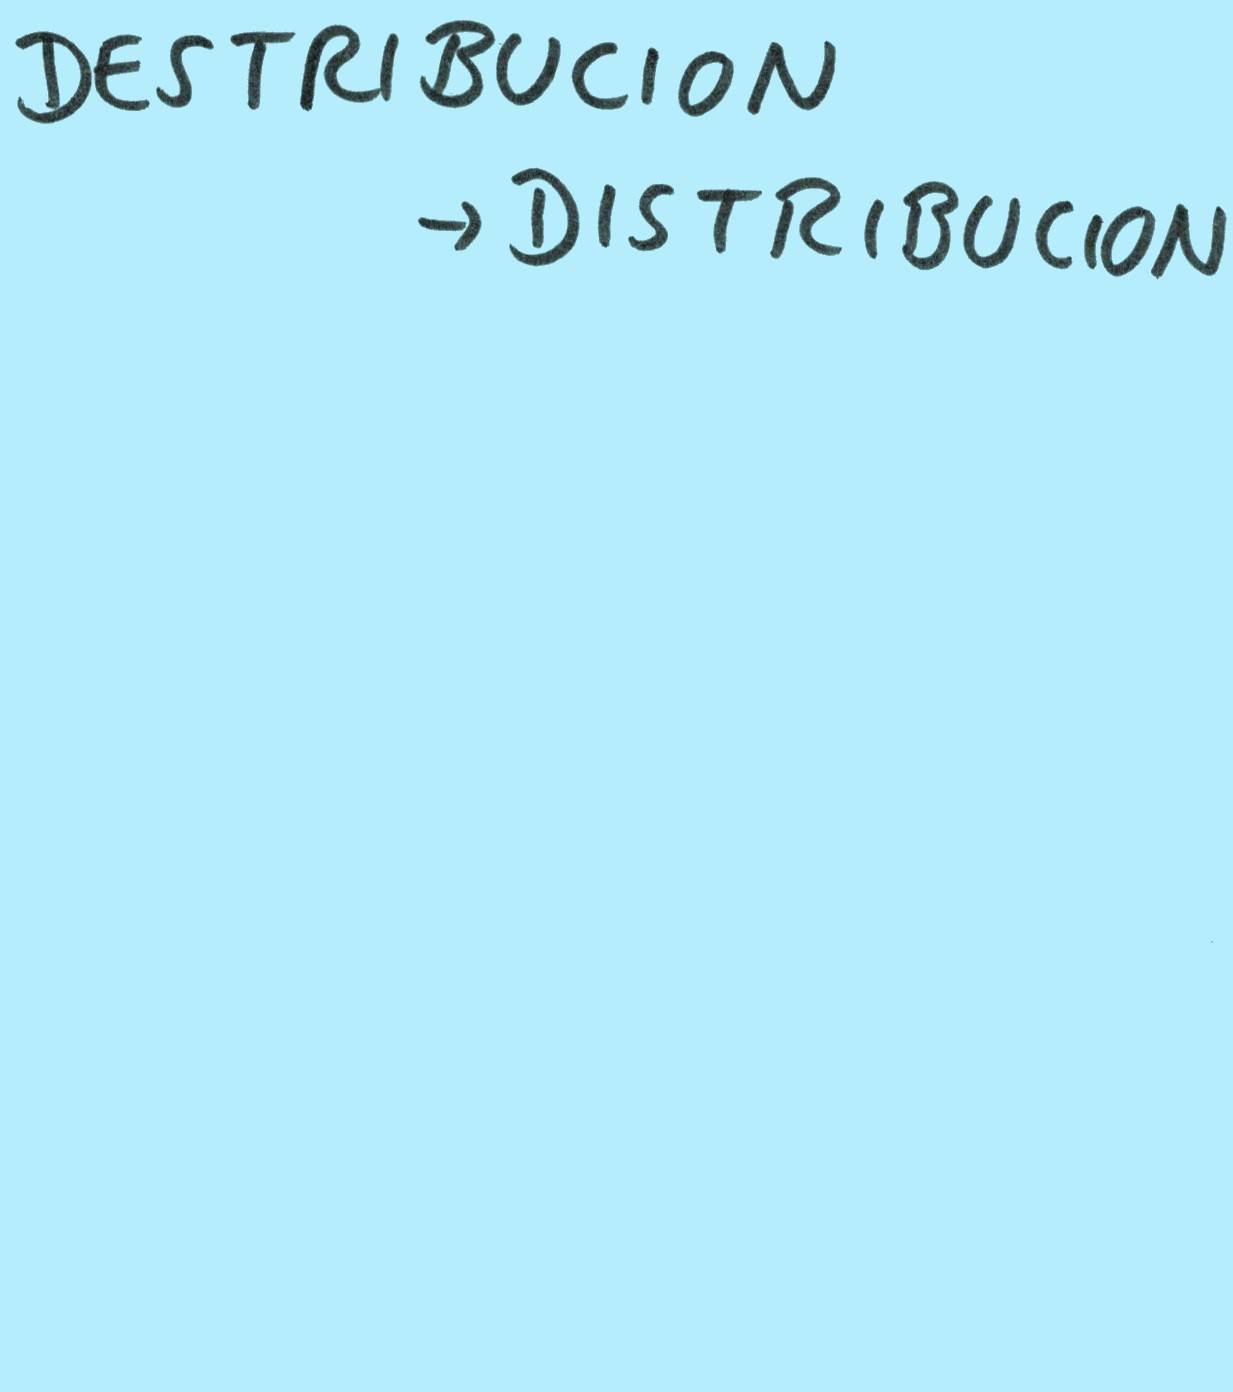 DESTRIBUCION
→ DISTRIBUCION